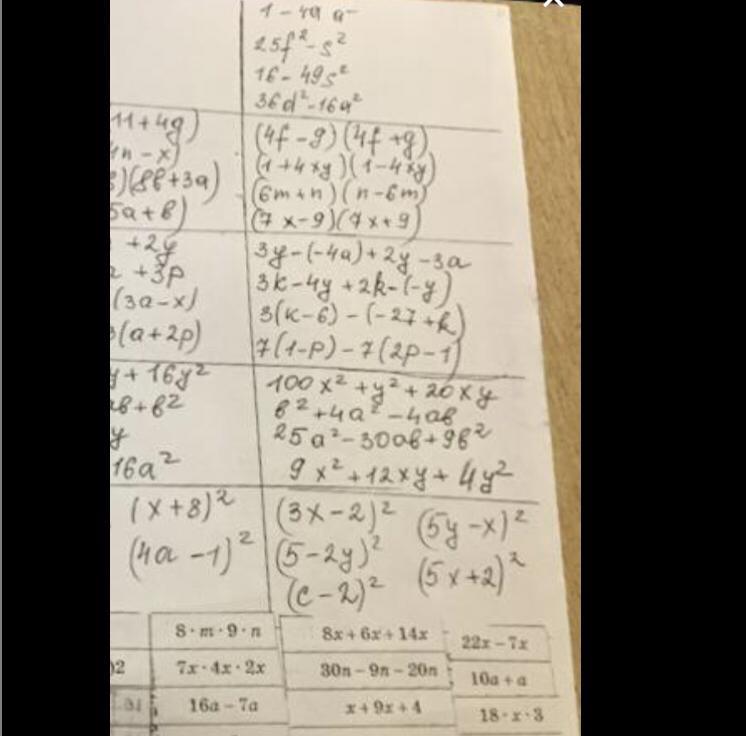 1 - 49 a
25f² - s²
16 - 49s²
36d² - 16a²
11 + 4g)
n - x)
)(8b + 3a)
5a + b)
(4f - g)(4f + g)
(1 + 4xy)(1 - 4xy)
(6m + n)(n - 6m)
(7x - 9)(7x + 9)
+ 2y
+ 3p
(3a - x)
3(a + 2p)
3y - (-4a) + 2y - 3a
3k - 4y + 2k - (-y)
3(k - 6) - (-27 + k)
7(1 - p) - 7(2p - 1)
y + 16y²
ab + b²
y
16a²
100x² + y² + 20xy
b² + 4a² - 4ab
25a² - 30ab + 9b²
9x² + 12xy + 4y²
(x + 8)²
(4a - 1)²
(3x - 2)² (5y - x)²
(5 - 2y)² (5x + 2)²
(c - 2)²
8 · m · 9 · n 8x + 6x + 14x 22x - 7x
)2 7x · 4x · 2x 30n - 9n - 20n 10a + a
16a - 7a x + 9x + 4 18 · x · 3